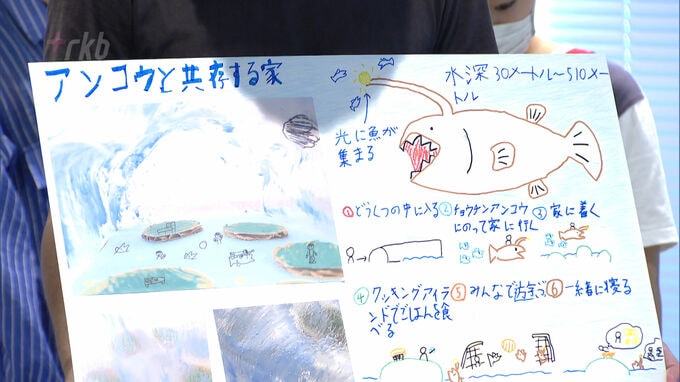 rkb
アンコウと共存する家
水深30メートル~510メー
トル
光に魚が
集まる
①どうくつの中に入る
②チョウチンアンコウ
にのって家に行く
③家に着く
④クッキングアイラ
ンドでごはんを食
べる
⑤みんなで遊ぶ
⑥一緒に寝る